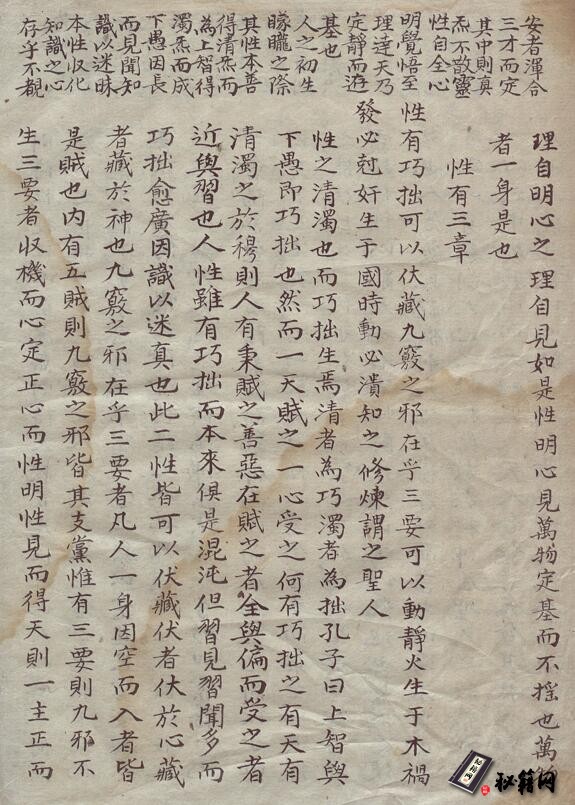 安者渾合
三才而定
其中則真
炁不散靈
性自全心
明覺悟至
理達天乃
定靜而遊
基也
人之初生
矇矓之際
其性本善
得清炁而
為上智得
濁炁而成
下愚因長
而見聞知
識以迷昧
本性収化
知識之心
存乎不覩
理自明心之理自見如是性明心見萬物定基而不搖也萬
者一身是也
性有三章
性有巧拙可以伏藏九竅之邪在乎三要可以動靜火生于木禍
發必尅奸生于國時動必潰知之修煉謂之聖人
性之清濁也而巧拙生焉清者為巧濁者為拙孔子曰上智與
下愚即巧拙也然而一天賦之一心受之何有巧拙之有天有
清濁之於穆則人有秉賦之善惡在賦之者全與偏而受之者
近與習也人性雖有巧拙而本來俱是混沌但習見習聞多而
巧拙愈廣因識以迷真也此二性皆可以伏藏伏者伏於心藏
者藏於神也九竅之邪在乎三要者凡人一身因空而入者皆
是賊也內有五賊則九竅之邪皆其支黨惟有三要則九邪不
生三要者収機而心定正心而性明性見而得天則一主正而
秘籍网
秘籍网